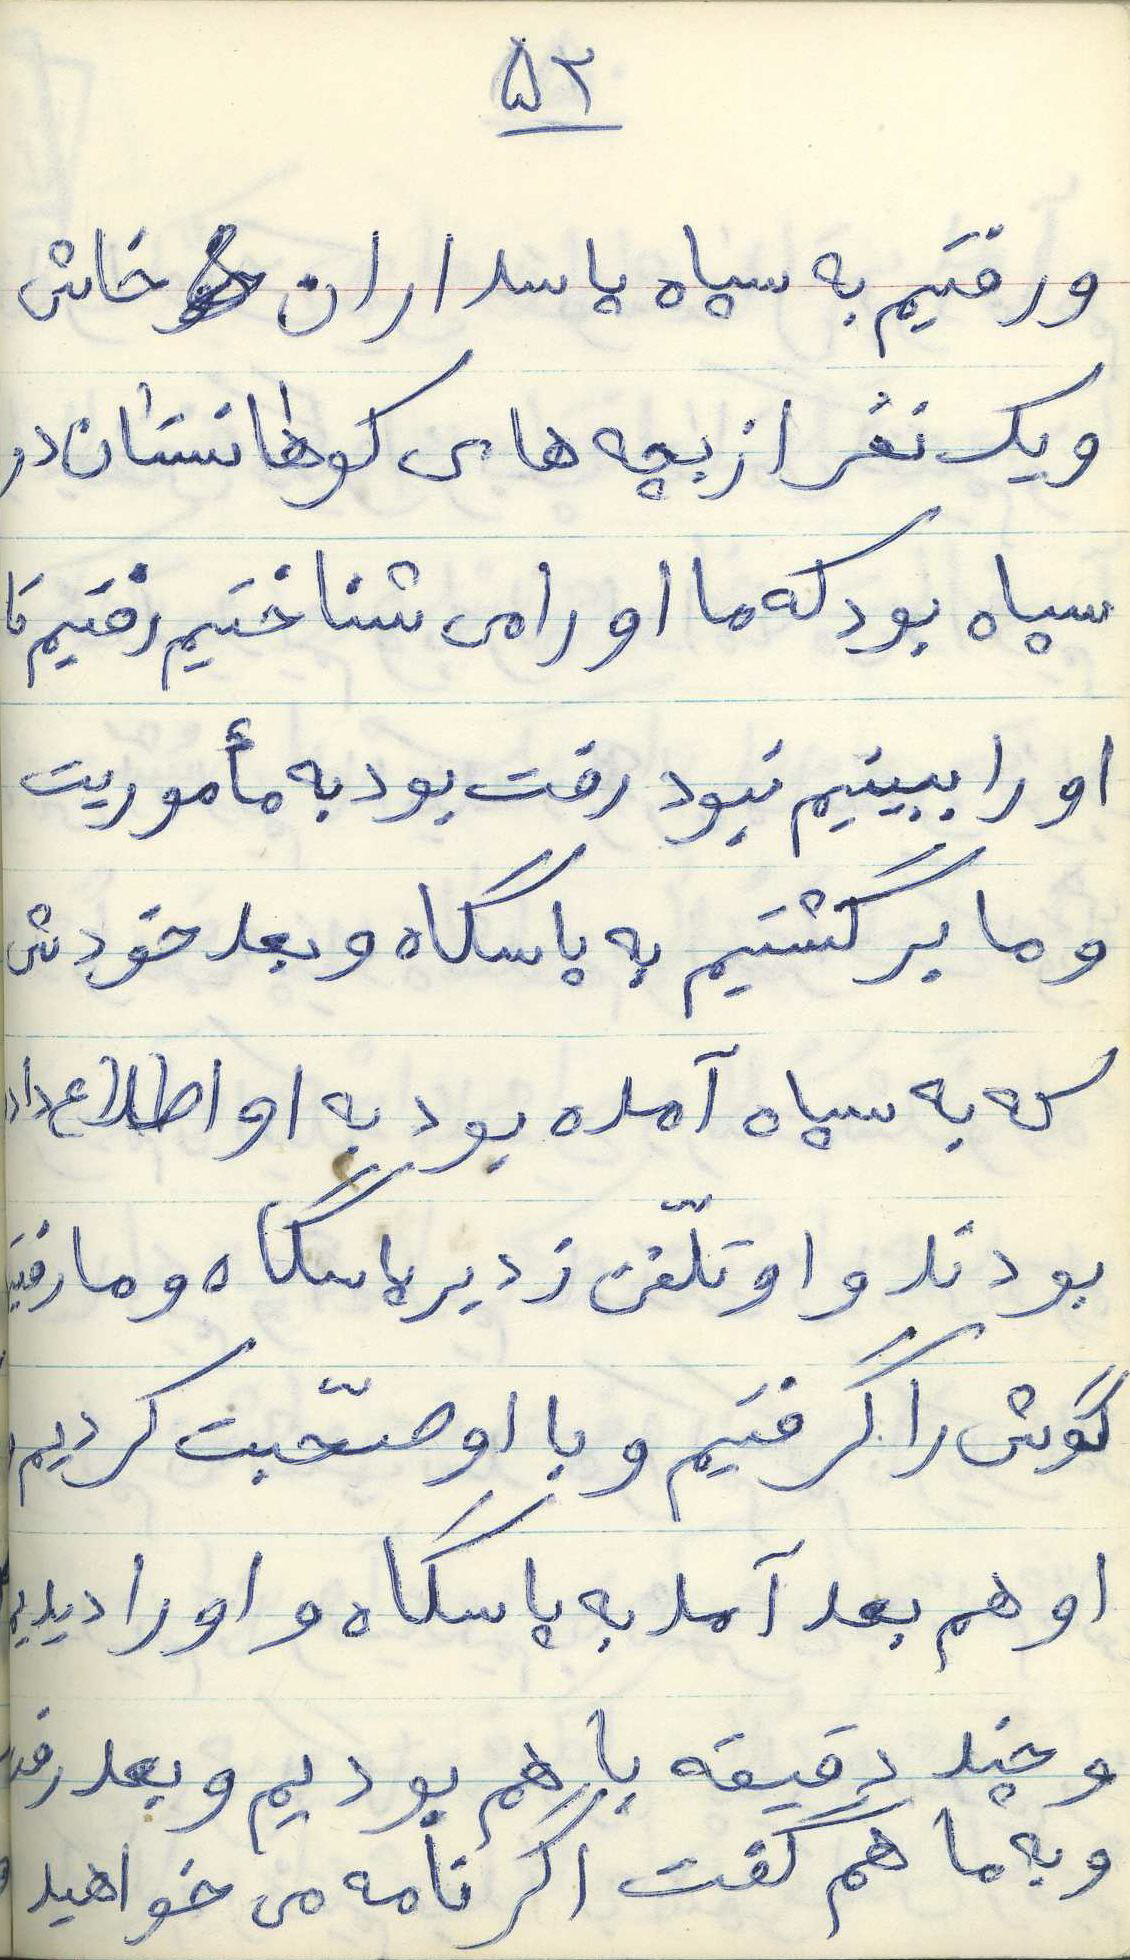 ۵۲
و رفتیم به سپاه پاسداران خاش
و یک نفر از بچه های کوهانستان در
سپاه بود که ما او را می شناختیم رفتیم تا
او را ببینیم نبود رفت بود به مأموریت
و ما برگشتیم به پاسگاه و بعد خودش
که به سپاه آمده بود به او اطلاع داده
بودند و او تلّفن زد به پاسگاه و ما رفتیم
گوش را گرفتیم و با او صّحبت کردیم
او هم بعد آمد به پاسگاه و او را دیدیم
و چند دقیقه با هم بودیم و بعد رفت
و به ما هم گفت اگر نامه می خواهید